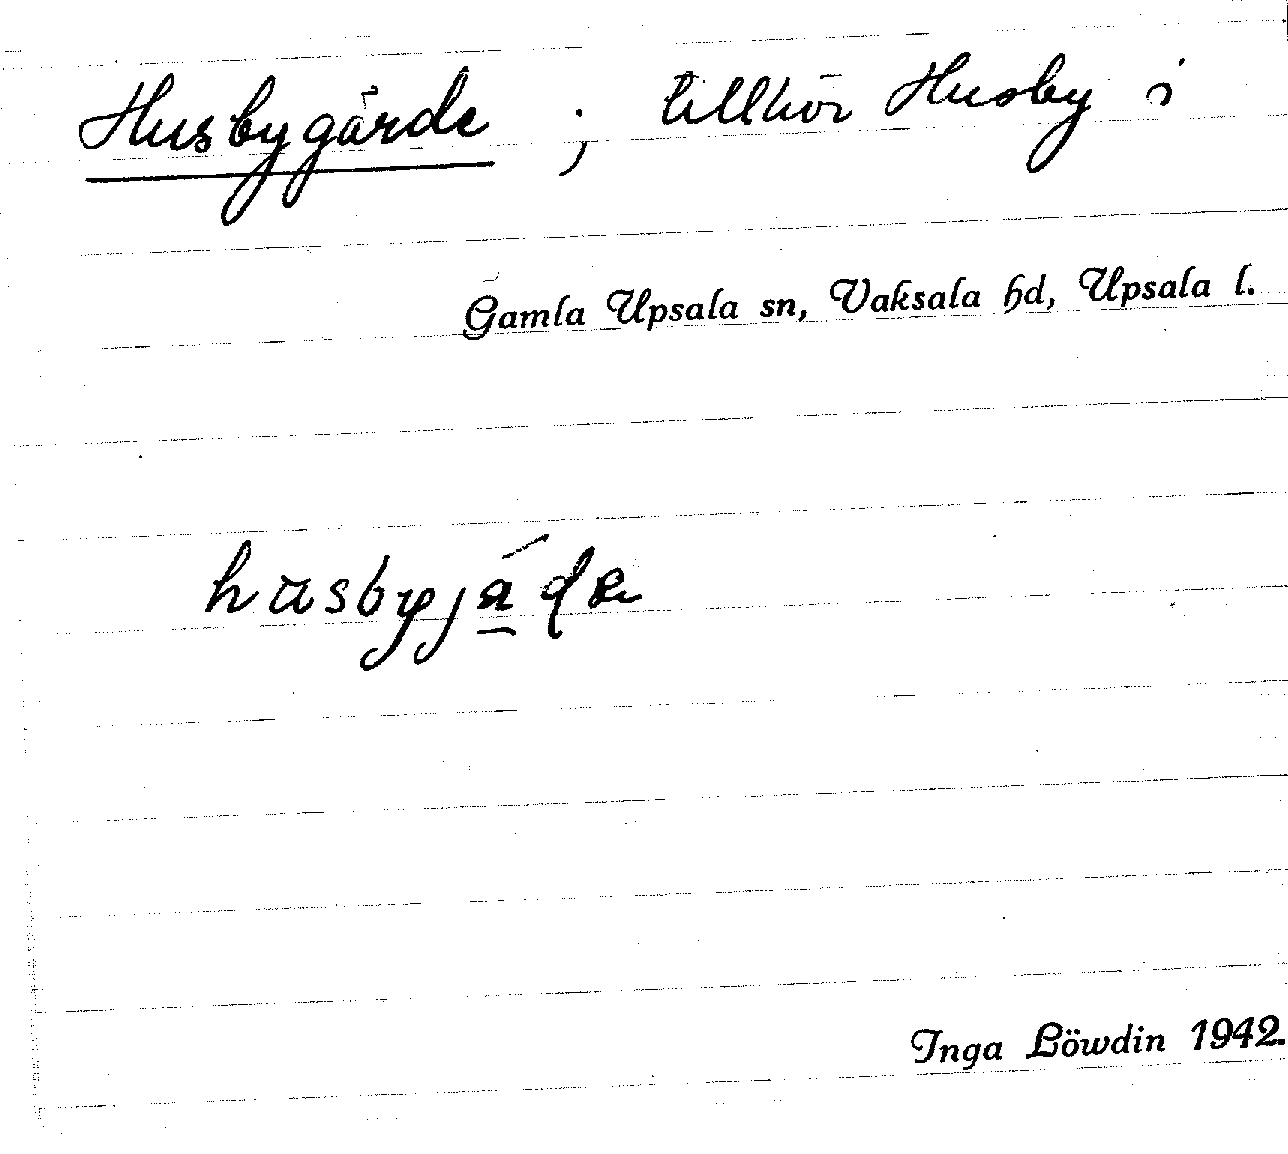 Husbygärde ; tillhör Husby i
Gamla Upsala sn, Vaksala hd, Upsala l.
husbyjá̱de
Inga Löwdin 1942.